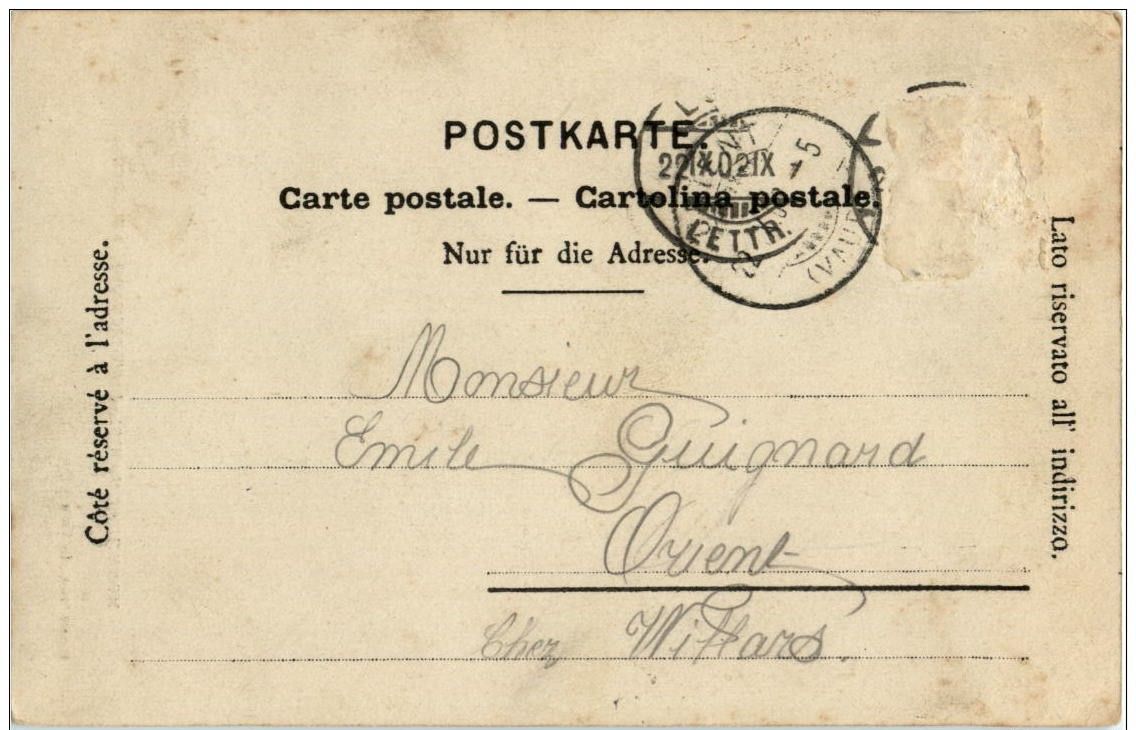 POSTKARTE.
Carte postale. — Cartolina postale.
Nur für die Adresse.
Côté réservé à l'adresse.
Lato riservato all' indirizzo.
22 IX 02 IX
LETTR.
(VAUD)
Monsieur
Emile Guignard
Orient
Chez Wittars.